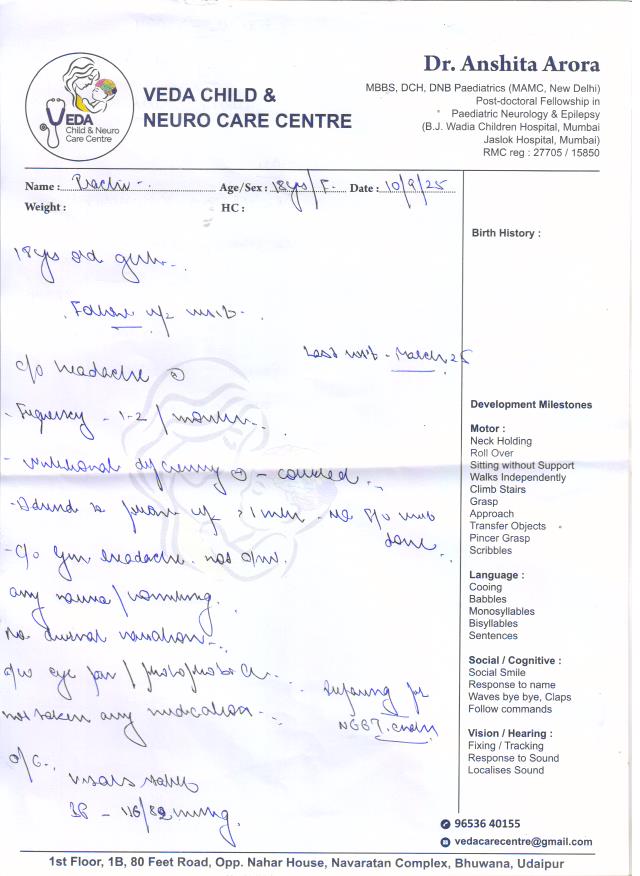 Dr. Anshita Arora
MBBS, DCH, DNB Paediatrics (MAMC, New Delhi)
Post-doctoral Fellowship in
Paediatric Neurology & Epilepsy
(B.J. Wadia Children Hospital, Mumbai
Jaslok Hospital, Mumbai)
RMC reg : 27705 / 15850
VEDA
Child & Neuro
Care Centre
VEDA CHILD &
NEURO CARE CENTRE
Name : Age/Sex : 18ys/F. Date : 10/9/25
Weight : HC :
18ys old
Follow
Last visit - March 25
c/o headache
- Frequency - 1-2 / month
- nutritional
- c/o headache. not
any nausea / vomiting.
No diurnal variation
eye pain / photophobia
not taken any medication
Preparing for
o/e.
vitals stable
BP - 116/82 mmHg.
Birth History :
Development Milestones
Motor :
Neck Holding
Roll Over
Sitting without Support
Walks Independently
Climb Stairs
Grasp
Approach
Transfer Objects
Pincer Grasp
Scribbles
Language :
Cooing
Babbles
Monosyllables
Bisyllables
Sentences
Social / Cognitive :
Social Smile
Response to name
Waves bye bye, Claps
Follow commands
Vision / Hearing :
Fixing / Tracking
Response to Sound
Localises Sound
96536 40155
vedacarecentre@gmail.com
1st Floor, 1B, 80 Feet Road, Opp. Nahar House, Navaratan Complex, Bhuwana, Udaipur